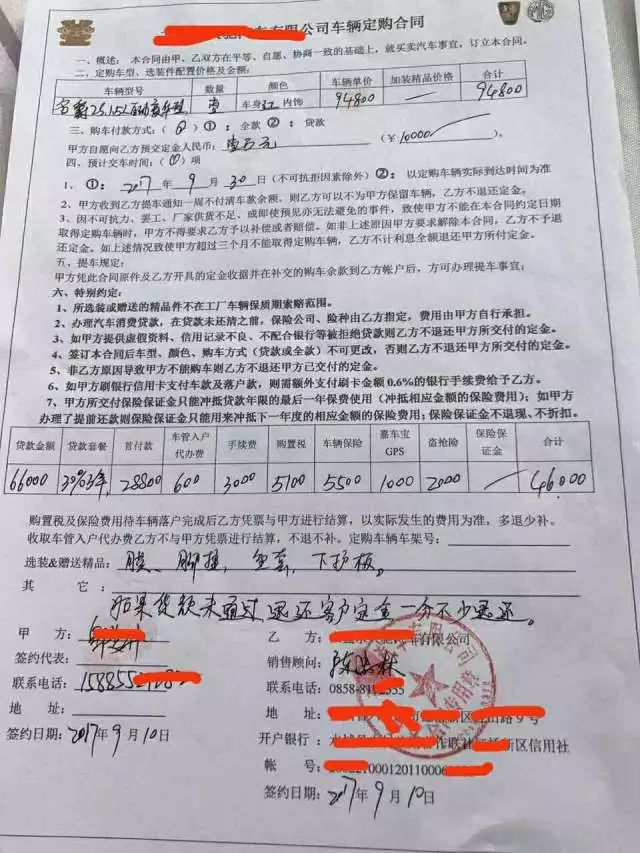 有限公司车辆定购合同
MG
一、概述：本合同由甲、乙双方在平等、自愿、协商一致的基础上，就买卖汽车事宜，订立本合同。
二、定购车型、选装件配置价格及金额：
车辆型号 数量 颜色 车辆单价 加装精品价格 合计
名爵ZS 1.5L 壹 车身红 内饰 94800 — 94800
三、购车付款方式：（②）①：全款 ②：贷款
甲方自愿向乙方预交定金人民币：壹万元（￥10000）
四、预计交车时间：（①）项
1、①：2017年9月30日（不可抗拒因素除外）②：以定购车辆实际到达时间为准
2、甲方收到乙方提车通知一周不付清车款余额，则乙方可以不为甲方保留车辆，乙方不退还定金。
3、因不可抗力、罢工、厂家供货不足、或即使预见亦无法避免的事件，致使甲方不能在本合同约定日期
取得定购车辆时，甲方不得要求乙方予以补偿或者赔偿。如非上述原因甲方要求解除本合同，乙方不予退
还定金。如上述情况致使甲方超过三个月不能取得定购车辆，乙方不计利息全额退还甲方所付定金。
五、提车规定：
甲方凭此合同原件及乙方开具的定金收据并在补交的购车余款到乙方帐户后，方可办理提车事宜；
六、特别约定：
1、所选装或赠送的精品件不在工厂车辆保质期索赔范围。
2、办理汽车消费贷款，在贷款未还清之前，保险公司、险种由乙方指定，费用由甲方自行承担。
3、如甲方提供虚假资料、信用记录不良、不配合银行等被拒绝贷款则乙方不退还甲方所交付的定金。
4、签订本合同后车型、颜色、购车方式（贷款或全款）不可更改，否则乙方不退还甲方所交付的定金。
5、非乙方原因导致甲方不能购车则乙方不退还甲方已交付的定金。
6、如甲方刷银行信用卡支付车款及落户款，则需额外支付刷卡金额0.6%的银行手续费给予乙方。
7、甲方所交付保险保证金只能冲抵贷款年限的最后一年保费使用（冲抵相应金额的保险费用）；如甲方
办理了提前还款则保险保证金只能用来冲抵下一年度的相应金额的保险费用；保险保证金不退现、不折扣。
贷款金额 贷款套餐 首付款 车管入户代办费 手续费 购置税 车辆保险 嘉车宝GPS 盗抢险 保险保证金 合计
66000 30%3年 28800 600 3000 5100 5500 1000 2000 — 46000
购置税及保险费用待车辆落户完成后乙方凭票与甲方进行结算，以实际发生的费用为准，多退少补。
收取车管入户代办费乙方不与甲方凭票进行结算，不退不补。定购车辆车架号：
选装&赠送精品：膜、脚垫，坐套，下护板。
其 它：
如果贷款未通过，退还客户定金一分不少退还。
甲 方：
乙 方：汽车有限公司
签约代表：
销售顾问：
联系电话：15885
联系电话：0858-8
地 址：
地 址：新区 路9号
签约日期：2017年9月10日
开户银行：合作联社 新区信用社
帐 号：10001201100
签约日期：2017年9月10日